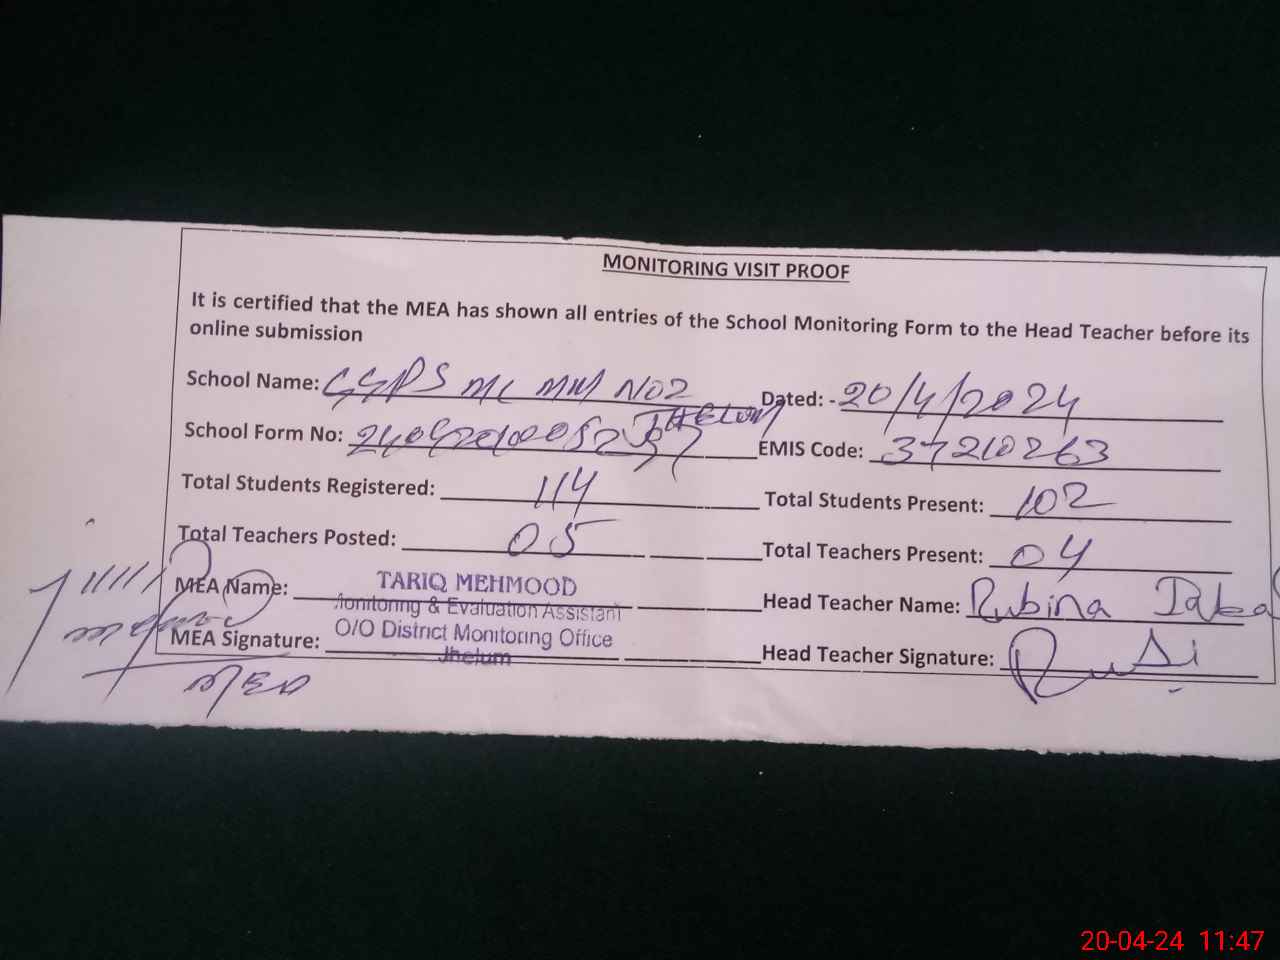 MONITORING VISIT PROOF
It is certified that the MEA has shown all entries of the School Monitoring Form to the Head Teacher before its
online submission
School Name: GGPS MC MM NO2 Dated: - 20/4/2024
JHELUM
School Form No: EMIS Code: 37210263
Total Students Registered: 114 Total Students Present: 102
Total Teachers Posted: 05 Total Teachers Present: 04
MEA Name: TARIQ MEHMOOD Head Teacher Name: Rubina
Monitoring & Evaluation Assistant
MEA Signature: O/O District Monitoring Office Head Teacher Signature:
Jhelum
20-04-24 11:47